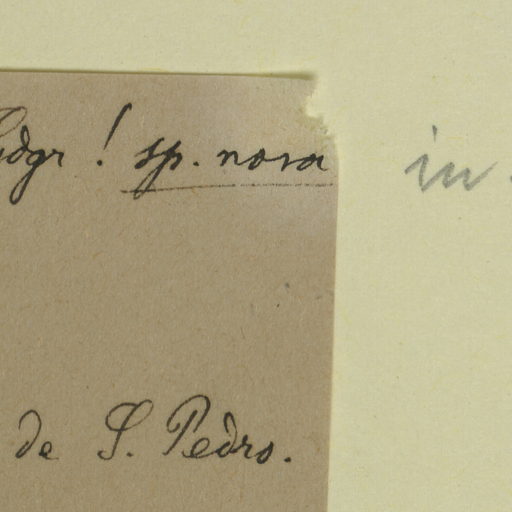 Lidgr! sp. nova in.
de S. Pedro.